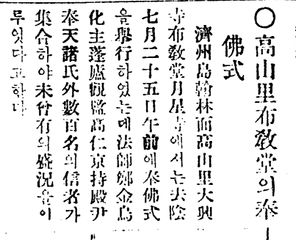 ○高山里布敎堂의奉
佛式
濟州島翰林面高山里大興
寺布敎堂月星寺에서는去陰
七月二十五日午前에奉佛式
을擧行하엿는데法師鄭金烏
化主蓬廬觀監高仁京持殿尹
奉天諸氏外數百名의信者가
集合하야未曾有의盛況을이
무엇다고한다